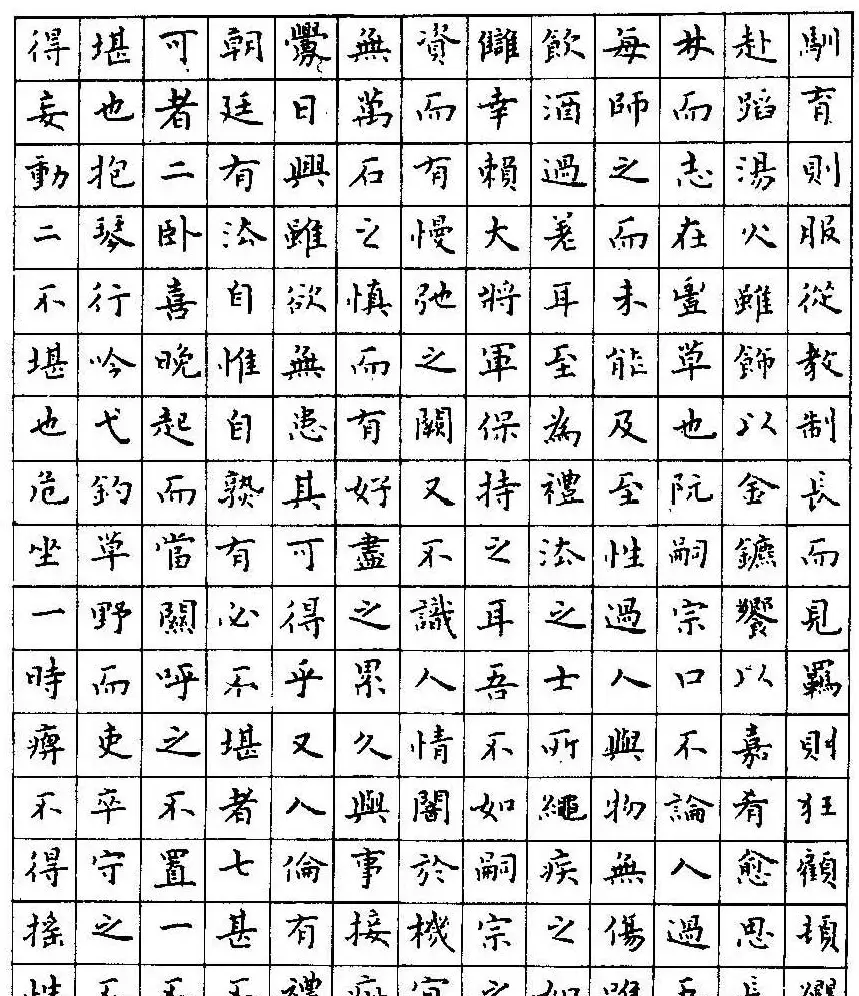 馴育則服從教制長而見羈則狂顧頓纓
赴蹈湯火雖飾以金鑣饗以嘉肴愈思長
林而志在豐草也阮嗣宗口不論人過吾
每師之而未能及至性過人與物無傷唯
飲酒過差耳至為禮法之士所繩疾之如
讎幸賴大將軍保持之耳吾不如嗣宗之
資而有慢弛之闕又不識人情闇於機宜
無萬石之慎而有好盡之累久與事接疵
釁日興雖欲無患其可得乎又人倫有禮
朝廷有法自惟自熟有必不堪者七甚不
可者二卧喜晚起而當關呼之不置一不
堪也抱琴行吟弋釣草野而吏卒守之不
得妄動二不堪也危坐一時痺不得搖性